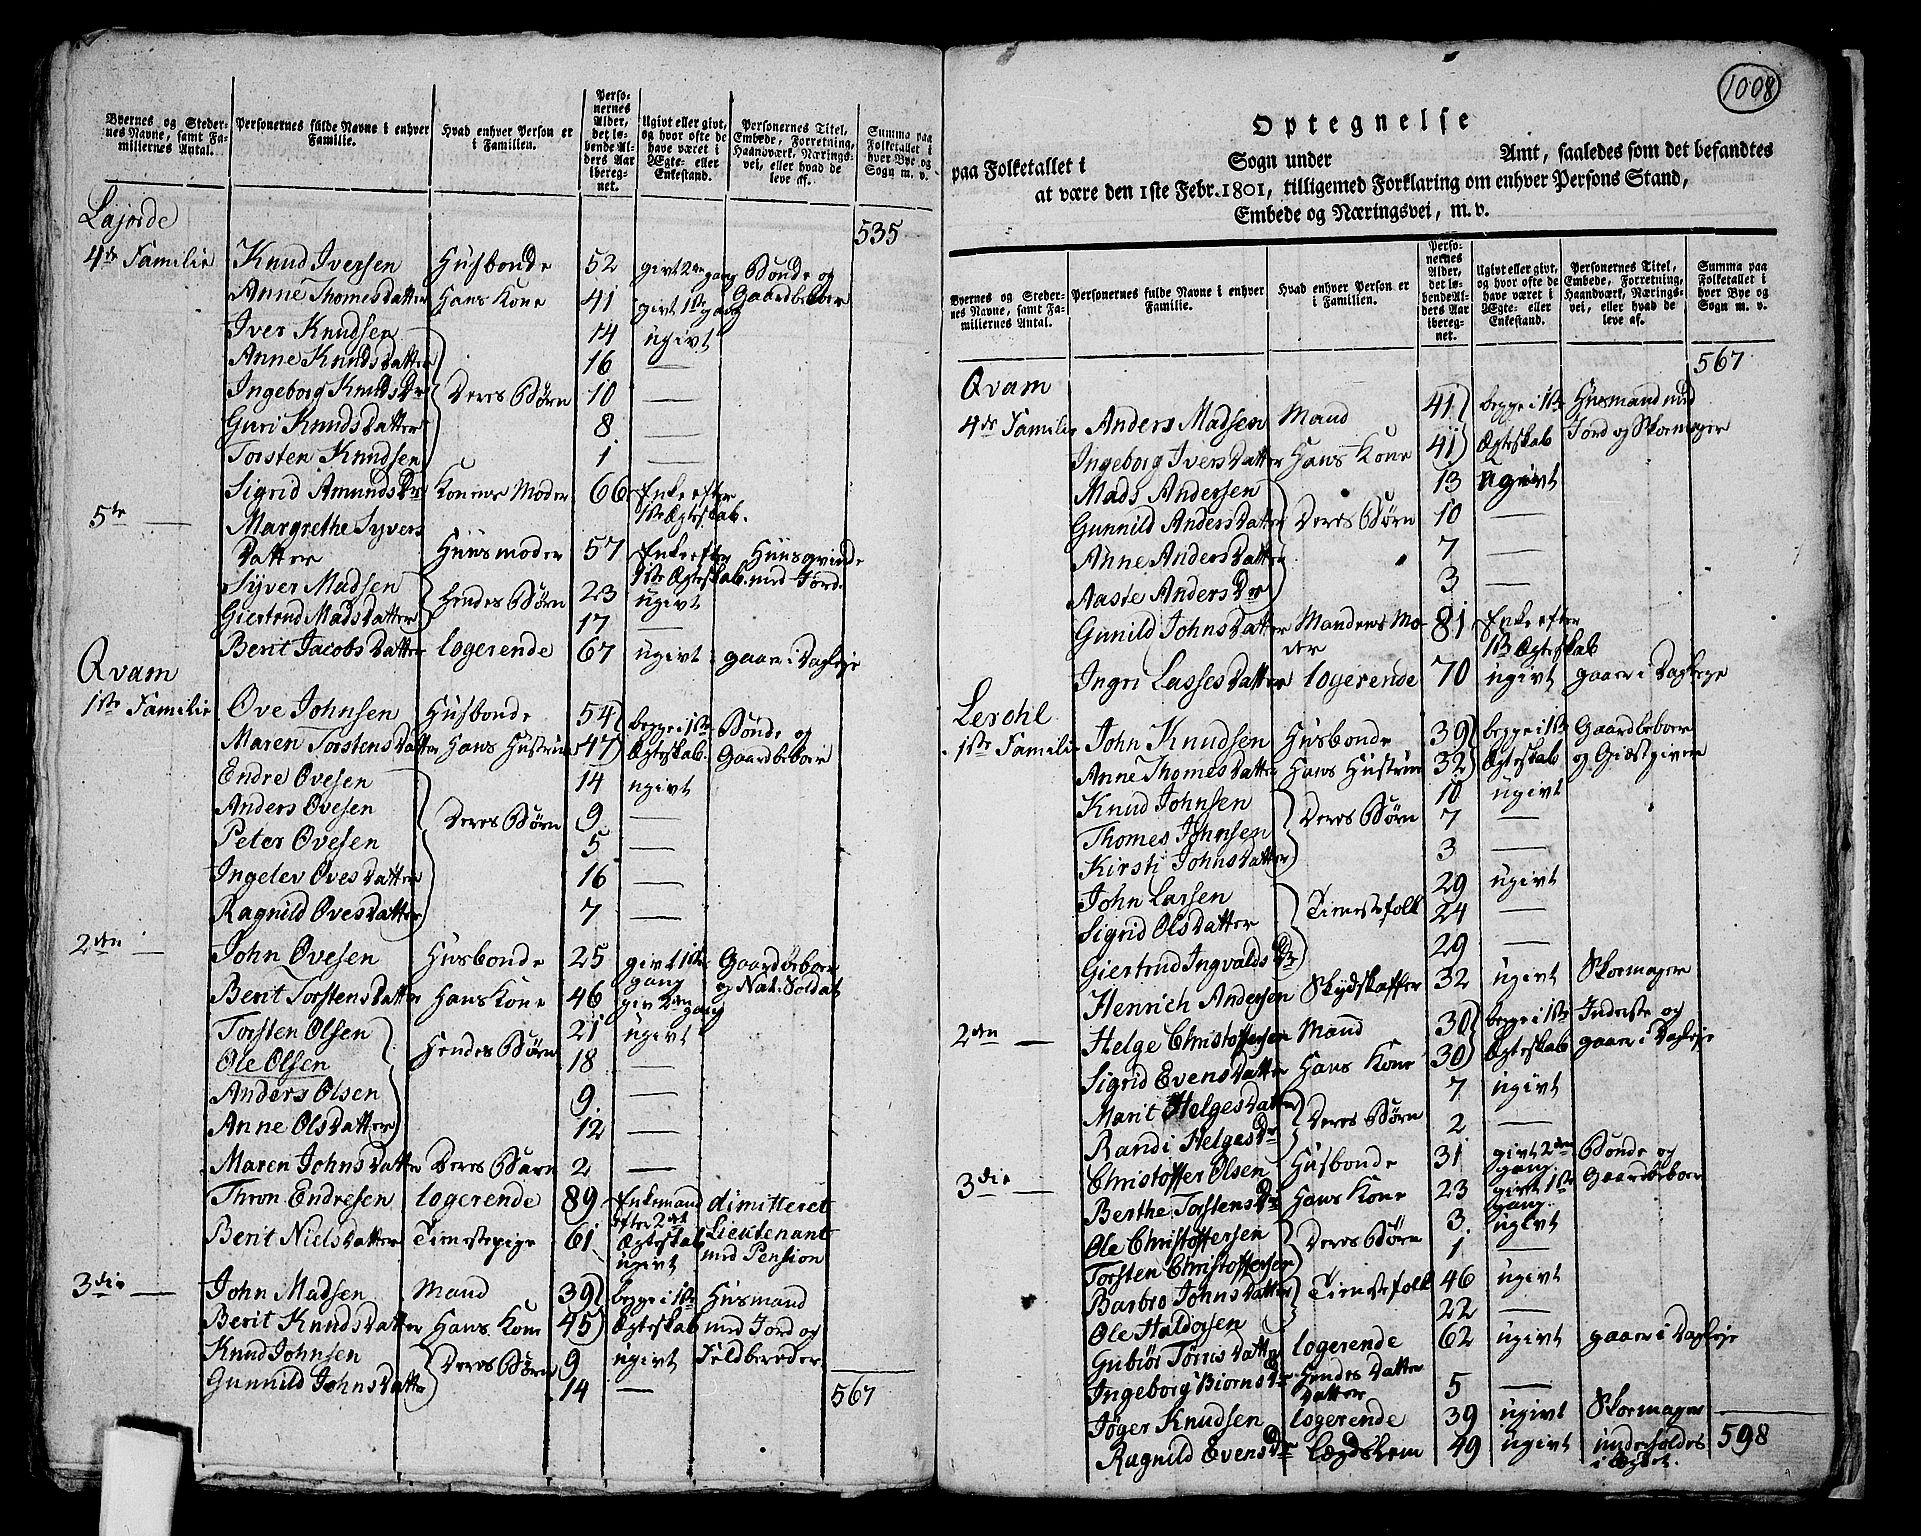 Byernes og Steder-
nes Navne, samt Fa-
miliernes Antal.
Personernes fulde Navne i enhver
Familie.
Hvad enhver Person er
i Familien.
Perso-
nernes
Alder,
det lø-
bende Al-
ders Aar
ibereg-
net.
Ugivt eller givt,
og hvor ofte de
have været i
Ægte- eller
Enkestand.
Personernes Titel,
Embede, Forretning,
Haandværk, Nærings-
vei, eller hvad de
leve af.
Summa paa
Folketallet i
hver Bye og
Sogn m. v.
Lajorde 535
4de Familie Knud Iversen Husbonde 52 givt 2den gang Bonde og
Anne Thomesdatter Hans Kone 41 givt 1ste gang Gaardbeboer
Iver Knudsen 14 ugivt
Anne Knudsdatter 16 —
Ingeborg Knudsdr Deres Børn 10 —
Guri Knudsdatter 8 —
Torsten Knudsen 1 —
Sigrid Amundsdr Konens Moder 66 Enke efter
1ste Ægteskab.
5te — Margrethe Syvers
datter Huusmoder 57 Enke efter Huusqvinde
1ste Ægteskab. med Jord.
Syver Madsen Hendes Børn 23 ugivt
Giertrud Madsdatter 17 —
Berit Jacobsdatter logerende 67 ugivt gaaer i Dagleje
Qvam
1ste Familie Ove Johnsen Husbonde 54 begge i 1ste Bonde og
Maren Torstensdatter Hans Hustrue 47 Ægteskab. Gaardbeboer
Endre Ovesen 14 ugivt
Anders Ovesen Deres Børn 9 —
Peter Ovesen 5 —
Ingelev Ovesdatter 16 —
Ragnild Ovesdatter 7 —
2den — John Ovesen Husbonde 25 givt 1ste Gaardbeboer
gang og Nat. Soldat
Berit Torstensdatter Hans Kone 46 giv 2den gang
Torsten Olsen 21 ugivt
Ole Olsen Hendes Børn 18 —
Anders Olsen 9 —
Anne Olsdatter 12 —
Maren Johnsdatter Deres Barn 2 —
Thron Endresen logerende 89 Enkemand dimitteret
efter 2det
Berit Nielsdatter Tienestepige 61 Ægteskab Lieutenant
ugivt med Pension
3die — John Madsen Mand 39 begge i 1ste Husmand
Berit Knudsdatter Hans Kone 45 Ægteskab med Jord og
Knud Johnsen Deres Børn 9 ugivt Feldbereder
Gunnild Johnsdatter 14 — 567
1008
Optegnelse
paa Folketallet i Sogn under Amt, saaledes som det befandtes
at være den 1ste Febr. 1801, tilligemed Forklaring om enhver Persons Stand,
Embede og Næringsvei, m. v.
Byernes og Steder-
nes Navne, samt Fa-
miliernes Antal.
Personernes fulde Navne i enhver
Familie.
Hvad enhver Person er
i Familien.
Perso-
nernes
Alder,
det lø-
bende Al-
ders Aar
ibereg-
net.
Ugivt eller givt,
og hvor ofte de
have været i
Ægte- eller
Enkestand.
Personernes Titel,
Embede, Forretning,
Haandværk, Nærings-
vei, eller hvad de
leve af.
Summa paa
Folketallet i
hver Bye og
Sogn m. v.
567
Qvam
4de Familie Anders Madsen Mand 41 begge i 1ste Husmand med
Ingeborg Iversdatter Hans Kone 41 Ægteskab Jord og Skomager
Mads Andersen 13 ugivt
Gunnild Andersdatter Deres Børn 10 —
Anne Andersdatter 7 —
Aaste Andersdr 3 —
Gunild Johnsdatter Mandens Mo- 81 Enke efter
der 1ste Ægteskab
Ingri Lassesdatter logerende 70 ugivt gaaer i Dagleje
Lerohl
1ste Familie John Knudsen Husbonde 39 begge i 1ste Gaardbeboer
Anne Thomesdatter Hans Hustrue 32 Ægteskab og Giestgiver
Knud Johnsen 10 ugivt
Thomes Johnsen Deres Børn 7 —
Kirsti Johnsdatter 3 —
John Larsen 29 ugivt
Sigrid Olsdatter Tienestefolk 24 —
Giertrud Ingvaldsdr 29 —
Henrich Andersen Skydskaffer 32 ugivt Skomager
2den — Helge Christoffersen Mand 30 begge i 1ste Inderste og
Sigrid Evensdatter Hans Kone 30 Ægteskab gaaer i Dagleje
Marit Helgesdatter Deres Børn 7 ugivt
Randi Helgesdr 2 —
3die — Christoffer Olsen Husbonde 31 givt 2den gang Bonde og
Berthe Torstensdr Hans Kone 23 givt 1ste gang. Gaardbeboer
Ole Christoffersen Deres Børn 3 ugivt
Torsten Christoffersen 1 —
Barbro Johnsdatter Tienestefolk 46 ugivt
Ole Haldorsen 22 —
Gubiør Tørrisdatter logerende 62 ugivt gaaer i Dagleje
Ingeborg Biørnsdr Hendes Datter
Datter 5 —
Jøger Knudsen logerende 39 ugivt Skomager
Ragnild Evensdr Lægdslem 49 ugivt underholdes
i Lægdet. 598